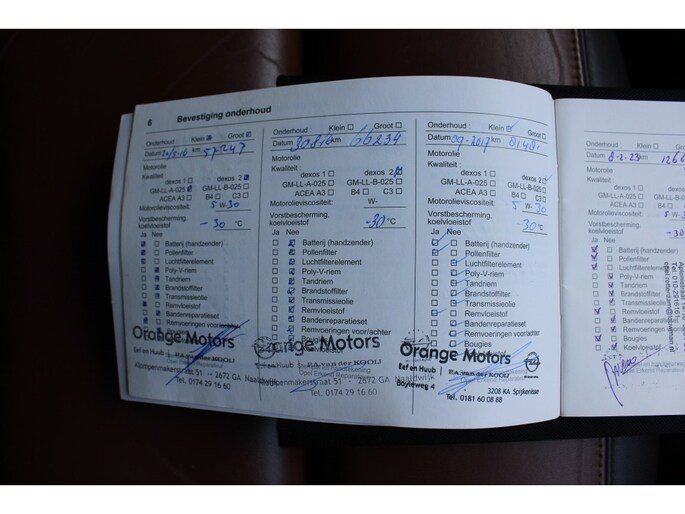 6 Bevestiging onderhoud
Onderhoud: Klein Groot
Datum km 57247
Motorolie
Kwaliteit:
dexos 1 dexos 2
GM-LL-A-025 GM-LL-B-025
ACEA A3 B4 C3
Motorolieviscositeit:
5 W-30
Vorstbescherming,
koelvloeistof
-30 °C
Ja Nee
Batterij (handzender)
Pollenfilter
Luchtfilterelement
Poly-V-riem
Tandriem
Brandstoffilter
Transmissieolie
Remvloeistof
Bandenreparatieset
Remvoeringen voor/achter
Orange Motors
Eef en Huub P.A. van der KOOIJ
Klompenmakerstraat 51 - 2672 GA Naaldwijk
Tel. 0174 29 16 60
Onderhoud: Klein Groot
Datum 30816 km 66234
Motorolie
Kwaliteit:
dexos 1 dexos 2
GM-LL-A-025 GM-LL-B-025
ACEA A3 B4 C3
Motorolieviscositeit:
W-
Vorstbescherming,
koelvloeistof
-30 °C
Ja Nee
Batterij (handzender)
Pollenfilter
Luchtfilterelement
Poly-V-riem
Tandriem
Brandstoffilter
Transmissieolie
Remvloeistof
Bandenreparatieset
Remvoeringen voor/achter
Bougies
Orange Motors
Eef en Huub P.A. van der KOOIJ
Klompenmakerstraat 51 - 2672 GA Naaldwijk
Tel. 0174 29 16 60
Onderhoud: Klein Groot
Datum 09-2017 km 81481
Motorolie
Kwaliteit:
dexos 1 dexos 2
GM-LL-A-025 GM-LL-B-025
ACEA A3 B4 C3
Motorolieviscositeit:
5 W-30
Vorstbescherming,
koelvloeistof
-30 °C
Ja Nee
Batterij (handzender)
Pollenfilter
Luchtfilterelement
Poly-V-riem
Tandriem
Brandstoffilter
Transmissieolie
Remvloeistof
Bandenreparatieset
Remvoeringen voor/achter
Bougies
Orange Motors
Eef en Huub P.A. van der KOOIJ
Opel Erkend Reparateur
Boyleweg 4
3208 KA Spijkenisse
Tel. 0181 60 08 88
Onderhoud: Klein
Datum 8-2-23 km 1266
Motorolie
Kwaliteit:
dexos 1
GM-LL-A-025
ACEA A3
Motorolieviscositeit:
Vorstbescherming,
koelvloeistof
-30
Ja Nee
Batterij (handzender)
Pollenfilter
Luchtfilterelement
Poly-V-riem
Tandriem
Brandstoffilter
Transmissieolie
Remvloeistof
Bandenreparatieset
Remvoeringen voor/
Bougies
Koelvloeistof